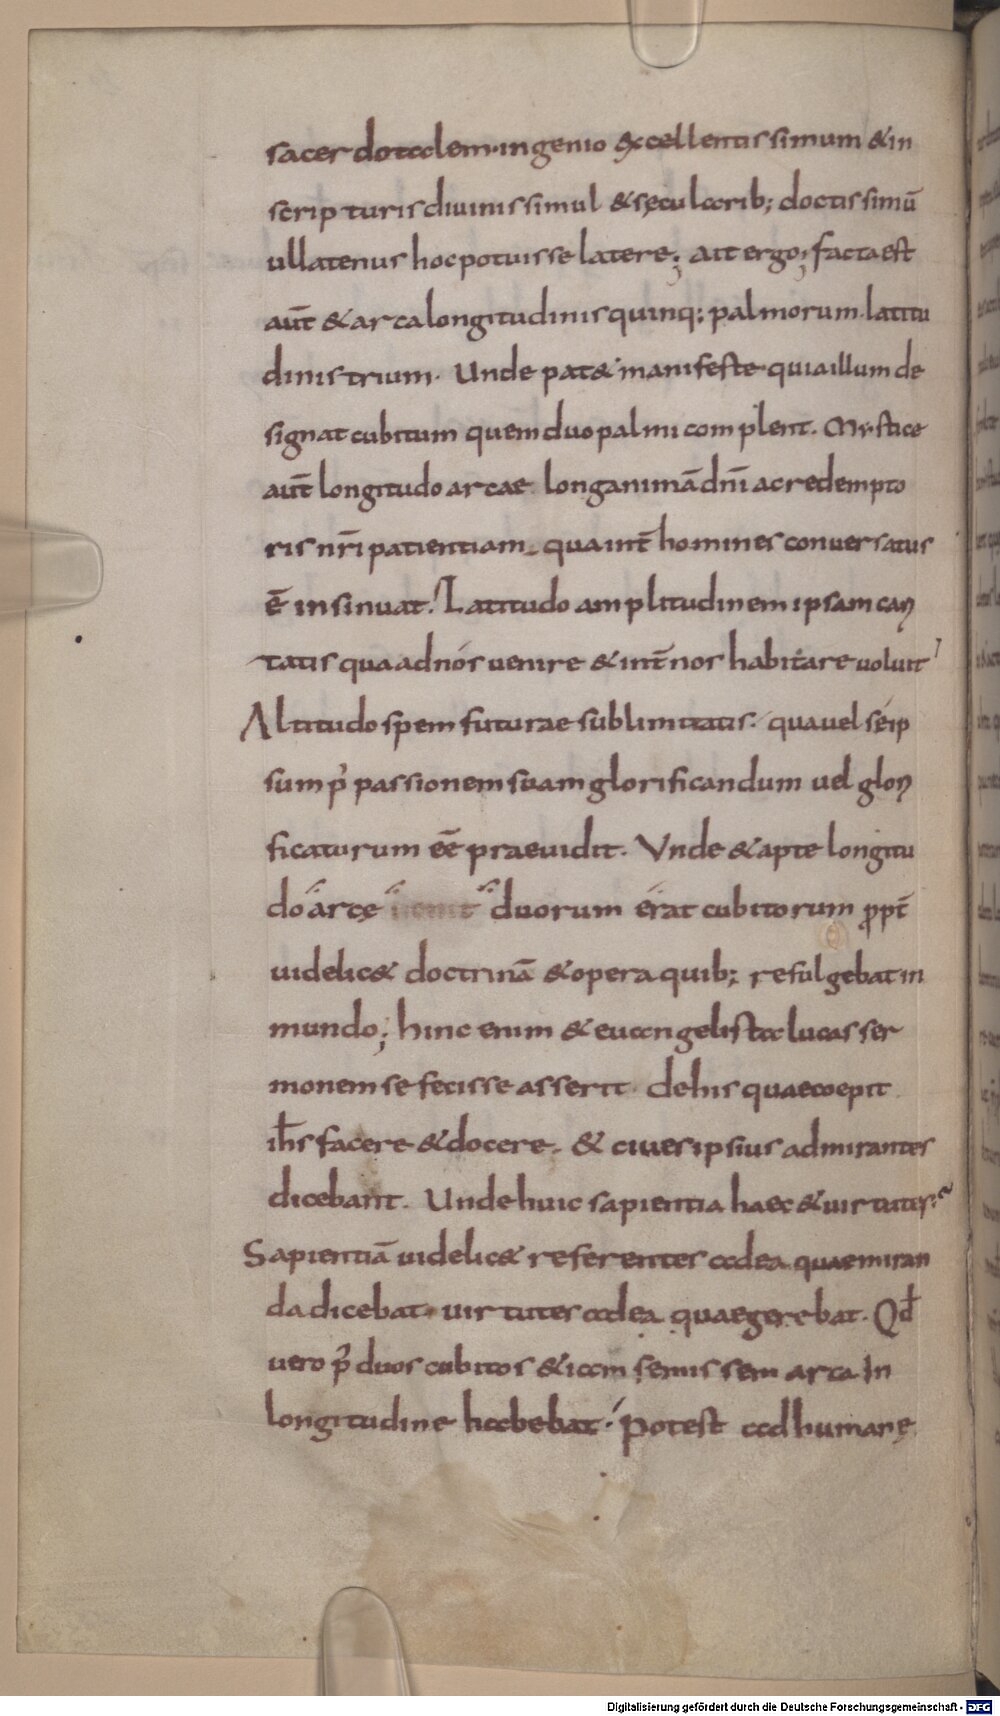 sacerdotalem· ingenio excellentissimum &in
scripturis diuinis simul & sęcularib; doctissimū
ullatenus hoc potuisse latere; Ait ergo; facta est
aut̄ & arca longitudinis quinq; palmorum· latitu
dinis trium· Unde pat& manifeste quia illum de
signat cubitum quem duo palmi complent. Mystice
aut̄ longitudo arcae longanimā dn̄i ac redempto
ris nr̄i patientiam, qua int̄ homines conuersatus
ē insinuat. Latitudo amplitudinem ipsam cari
tatis qua ad nós uenire & int̄ nos habitare uoluit
Altitudo spem futurae sublimitatis· qua uel séip
sum p̓ passionem suam glorificandum uel glori
ficaturum eē praeuidit. Vnde & apte longitu
do arcę duorum erat cubitorum ꝓpt̄
uidelic& doctrinā & opera quib; refulgebat in
mundo; hinc enim & euangelista lucas ser
monem se fecisse asserit de his quae coepit
ih̄s facere & docere. & ciues ipsius admirantes
dicebant. Unde huic sapientia haec & uirtutes;
Sapientiā uidelic& referentes ad ea quae miran
da dicebat· uirtutes ad ea quae gerebat. Qd̄
uero p̓ duos cubitos & iam semissem arca In
longitudine habebat· Potest ad humanę
Digitalisierung gefördert durch die Deutsche Forschungsgemeinschaft - DFG